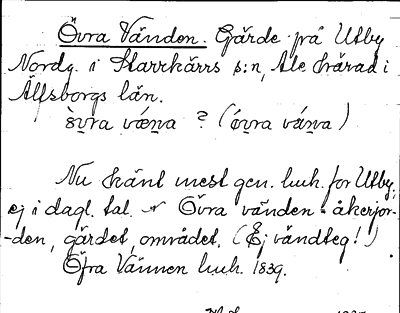 Övra Vänden. Gärde på Utby
Nordg. i Starrkärrs s:n, Ale härad i
Älfsborgs län.
òvra væna ? (óvra vána)
Nu känt mest gen. huh. for Utby,
ej i dagl. tal. Övra vänden = åkerjor-
-den, gärdet, området. (Ej vändteg!)
Öfra Vännen huh. 1839.